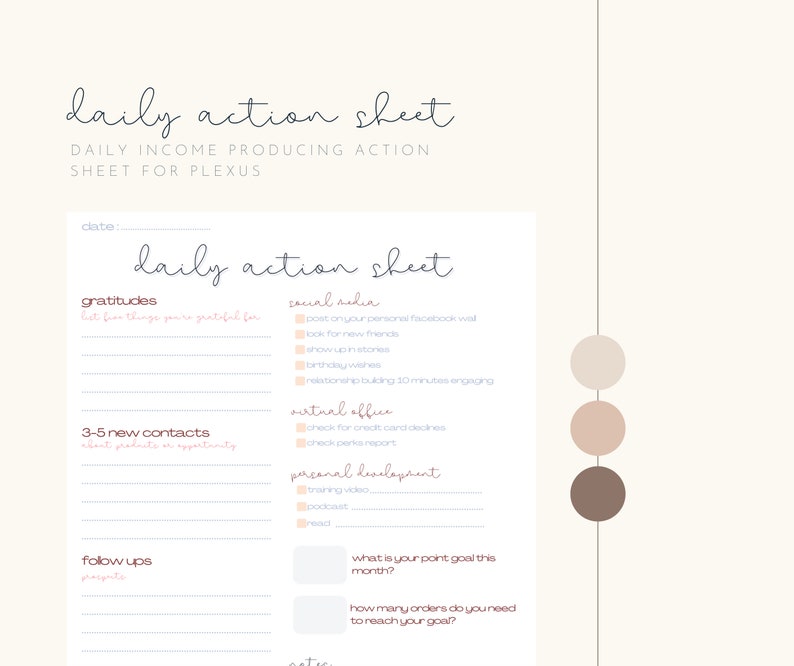 daily action sheet
DAILY INCOME PRODUCING ACTION
SHEET FOR PLEXUS
date :
daily action sheet
gratitudes
list five things you're grateful for
3-5 new contacts
about products or opportunity
follow ups
prospects
social media
post on your personal facebook wall
look for new friends
show up in stories
birthday wishes
relationship building: 10 minutes engaging
virtual office
check for credit card declines
check perks report
personal development
training video
podcast
read
what is your point goal this
month?
how many orders do you need
to reach your goal?
notes